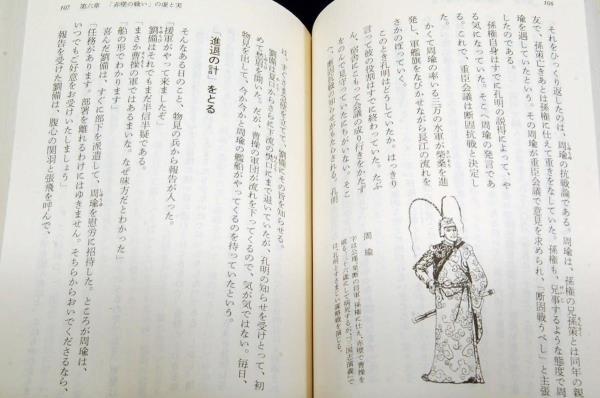 106
それをひっくり返したのは、周瑜の抗戦論である。周瑜は、孫権の兄孫策とは同年の親
友で、孫策亡きあとは孫権に仕えて重きをなしていた。孫権も、兄事するような態度で周
瑜を遇していたという。その周瑜が重臣会議で意見を求められ、「断固戦うべし」と主張
したのである。
孫権自身はすでに孔明の説得によって、や
る気になっていた。そこへ周瑜の発言であ
る。これで、重臣会議は断固抗戦と決定し
た。
かくて周瑜の率いる三万の水軍が柴桑を進
発し、軍艦旗をなびかせながら長江の流れを
さかのぼっていく。
このとき孔明はどうしていたか。はっきり
言って彼の役割はすでに終わっていた。たぶ
ん、宿舎にこもって会議の成り行きをかたず
をのんで見守っていたにちがいない。そこ
へ、断固決戦の知らせがもたらされる。孔明
周瑜
字は公瑾。呉の将軍。孫権に仕え、赤壁で曹操を
破る。三十六歳にして病死するが、『三国志演義』で
は、孔明とすさまじい謀略戦を演じる。
107 第六章 「赤壁の戦い」の虚と実
は、すぐさま急使を立てて、劉備にその旨を知らせる。
劉備は夏口からさらに下流の樊口にまで退いていたが、孔明の知らせを受けとって、初
めて愁眉を開いた。だが、曹操の軍団が流れを下ってくるので、気が気ではない。毎日、
物見を出して、今か今かと周瑜の艦船がやってくるのを待っていたという。
「進退の計」をとる
そんなある日のこと、物見の兵から報告が入った。
「援軍がやって来ましたぞ」
劉備はそれでもまだ半信半疑である。
「まさか曹操の軍ではあるまいな。なぜ味方だとわかった」
「船の形でわかります」
喜んだ劉備は、すぐに部下を派遣して、周瑜を慰労に招待した。ところが周瑜は、
「任務があります。部署を離れるわけにはゆきません。そちらからおいでくださるなら、
いつでもご好意をお受けいたしましょう」
報告を受けた劉備は、腹心の関羽と張飛を呼んで、